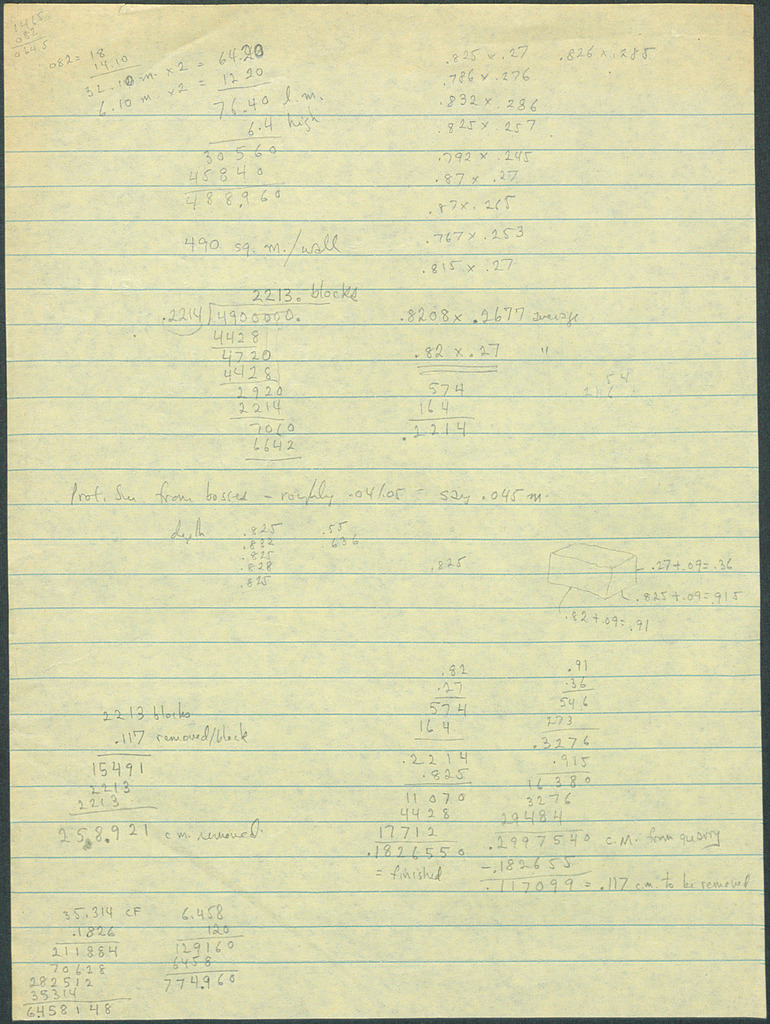 1465
082
0645
.082 = 18
14.10
32.10 m. x 2 = 64.20
6.10 m x 2 = 12 20
76.40 l.m.
6.4 high
30 560
45840
488.960
490 sq. m./wall
2213. blocks
.2214 4900000.
4428
4720
4428
2920
2214
7060
6642
.825 x .27
.826 x .285
.786 x .276
.832 x .286
.825 x .257
.792 x .245
.87 x .27
.87 x .265
.767 x .253
.815 x .27
.8208 x .2677 average
.82 x .27 "
574
164
.2214
54
from bossed - roughly .04/.05 - say .045 m.
depth
.825
.832
.825
.828
.825
.55
.636
.825
.27 + .09 = .36
.825 + .09 = .915
.82 + .09 = .91
2213 blocks
.117 removed/block
15491
2213
2213
258.921 c.m. removed.
.82
.27
574
164
.2214
.825
11 070
4428
17712
.1826550
= finished
.91
.36
546
273
.3276
.915
16 380
3276
29484
.2997540 c.m. from quarry
-.182655
.117099 = .117 c.m. to be removed
35.314 CF
.1826
211884
70628
282512
35314
6.458148
6.458
120
129160
6458
774.960